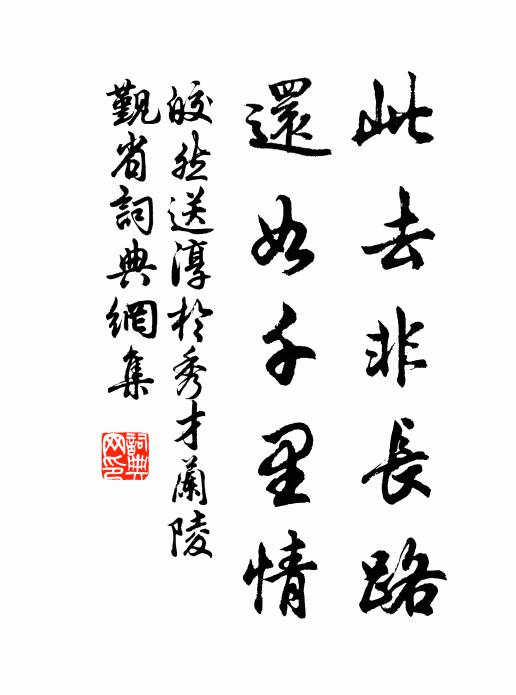 此去非長路
還如千里情
皎然送淳於秀才蘭陵
覲省詞典網集
詞典網印